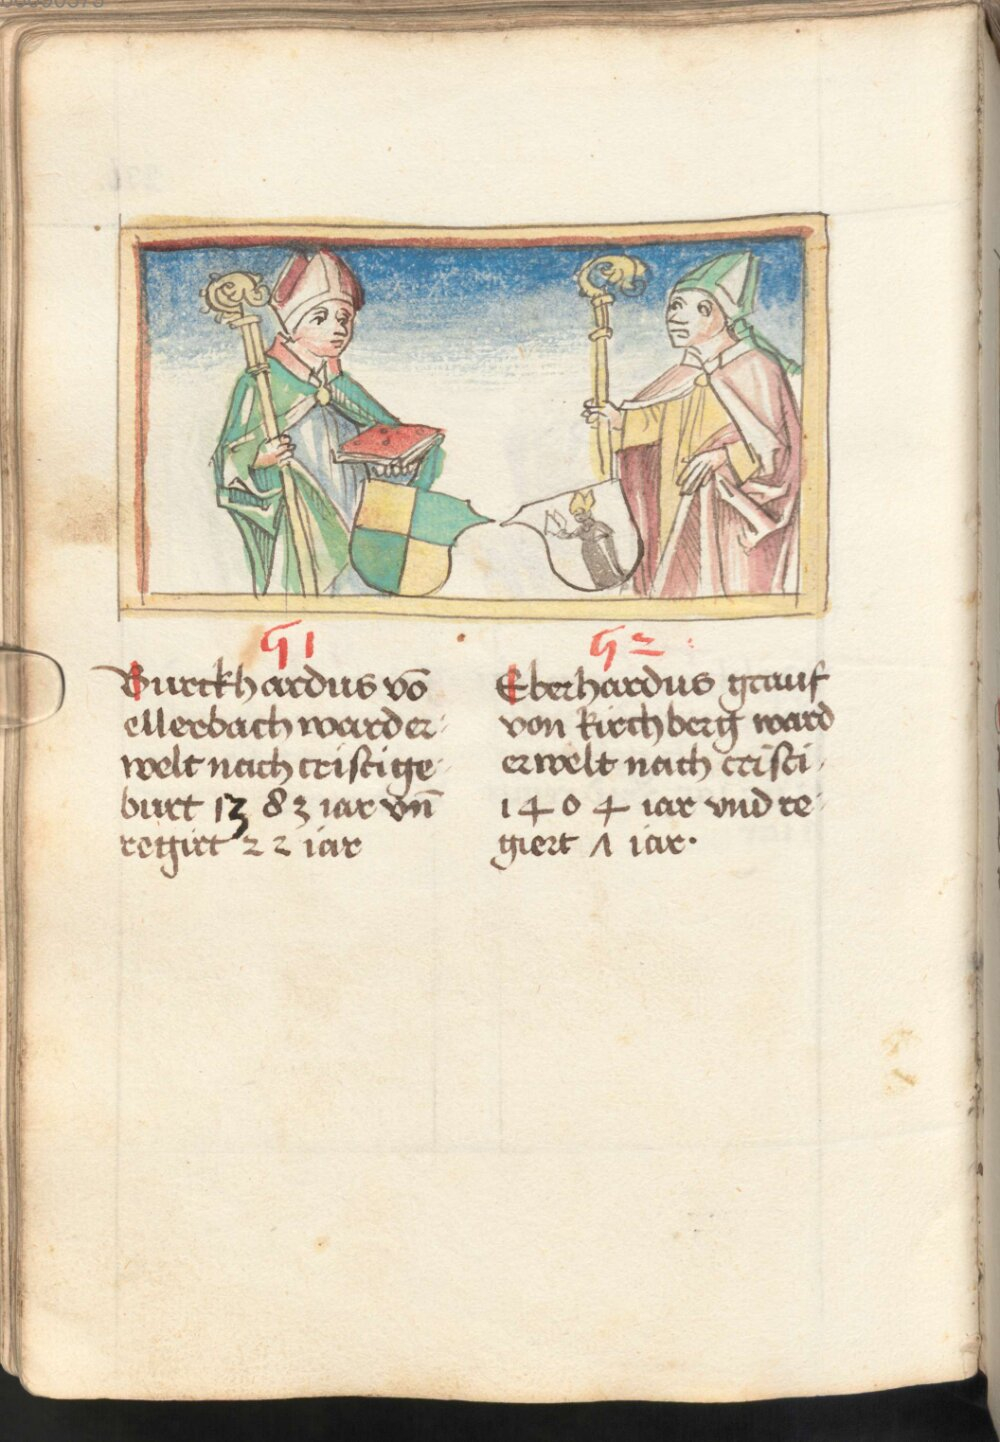 51
Burckhardus vō
ellerbach ward er-
welt nach cristi ge-
burt 1383 iar vn̄
regirt 22 iar
52
Eberhardus grauf
von kirchberg ward
erwelt nach cristi
1404 iar vnd re-
giert Λ iar.